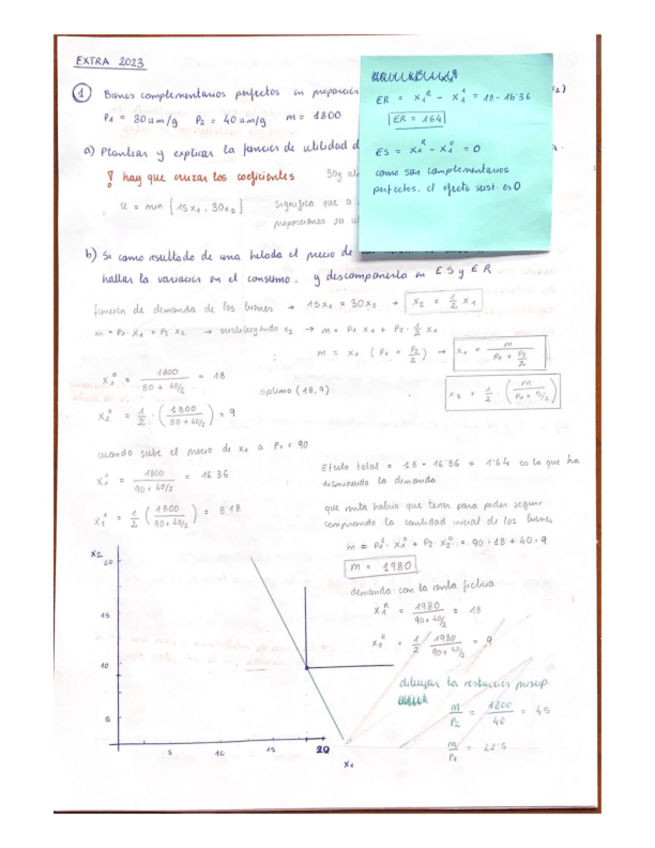 EXTRA 2023
① Bienes complementarios perfectos en proporción
P1 = 80um/g P2 = 40um/g m = 1800
a) Plantear y explicar la función de utilidad d
! hay que cruzar los coeficientes 30g
u = min { 15x1 , 30x2 } significa que a
proporciones su
ER = X1^R - X1^1 = 18 - 16'36
ER = 1'64
ES = X1^R - X1^0 = 0
como son complementarios
perfectos, el efecto sust. es 0
x2)
b) Si como resultado de una helada el precio de
hallar la variación en el consumo, y descomponerla en ES y ER
función de demanda de los bienes → 15x1 = 30x2 → x2 = 1/2 x1
m = P1·X1 + P2 X2 → sustituyendo x2 → m = P1 X1 + P2· 1/2 X1
m = x1 (P1 + P2/2) → x1 = m / (P1 + P2/2)
x1^0 = 1800 / (80 + 40/2) = 18
óptimo (18,9)
x2 = 1/2 · (m / (P1 + P2/2))
x2^0 = 1/2 · (1800 / (80 + 40/2)) = 9
cuando sube el precio de x1 a P1 = 90
x1^1 = 1800 / (90 + 40/2) = 16'36
x2^1 = 1/2 (1800 / (90 + 40/2)) = 8'18
Efecto total = 18 - 16'36 = 1'64 es lo que ha
disminuido la demanda
que renta habria que tener para poder seguir
comprando la cantidad inicial de los bienes
m = P1^1 · X1^0 + P2 · X2^0 = 90·18 + 40·9
m = 1980
demanda con la renta ficticia
X1^R = 1980 / (90 + 40/2) = 18
X2^R = 1/2 1980 / (90 + 40/2) = 9
dibujar la restricción presup.
m/P2 = 1800/40 = 45
m/P1 = 22'5
X2
20
15
10
5
5 10 15 20
X1